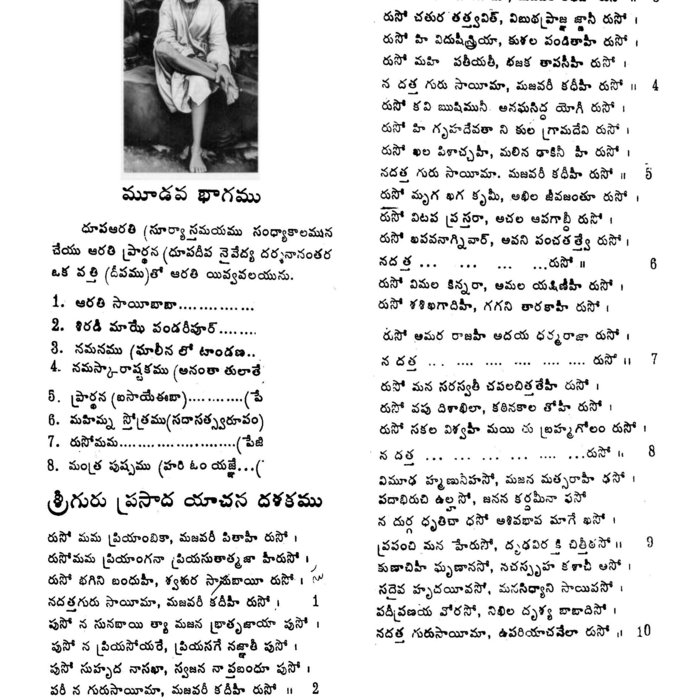 మూడవ భాగము
ధూపఆరతి (సూర్యాస్తమయము సంధ్యాకాలమున
చేయు ఆరతి ప్రార్థన (ధూపదీవ నైవేద్య దర్శనానంతర
ఒక వత్తి (దీపము)తో ఆరతి యివ్వవలయును.
1. ఆరతి సాయిబాబా..............
2. శిరడీ మాఝే పండరీపూర్........
3. నమనము (ఘాలీన లో టాండణ..
4. నమస్కా-రాష్టకము (అనంతా తులాతే
5. ప్రార్థన (ఐసాయేఈబా)..........(పే
6. మహిమ్న స్తోత్రము(సదాసత్స్వరూపం)
7. రుసోమమ.....................(పేజీ
8. మంత్ర పుష్పము (హరి ఓం యజ్ఞే...(
శ్రీగురు ప్రసాద యాచన దశకము
రుసో మమ ప్రియాంబికా, మజవరీ పితాహీ రుసో ।
రుసోమమ ప్రియాంగనా ప్రియసుతాత్మజా హీరుసో ।
రుసో భగిని బంధుహీ, శ్వశుర సాసుబాయీ రుసో ।
నదత్తగురు సాయీమా, మజవరీ కదీహీ రుసో । 1
పుసో న సునబాయి త్యా మజన భ్రాతృజాయా పుసో ।
పుసో న ప్రియసోయరే, ప్రియసగే నజ్ఞాతీ పుసో ।
పుసో సుహృద నాసఖా, స్వజన నాప్తబంధూ పుసో ।
పరీ న గురుసాయీమా, మజవరీ కధీహీ రుసో ॥ 2
రుసో చతుర తత్త్వవిత్, విబుధప్రాజ్ఞ జ్ఞానీ రుసో ।
రుసో హి విదుషీస్త్రియా, కుశల పండితాహీ రుసో ।
రుసో మహి పతీయతీ, భజక తాపసీహీ రుసో ।
న దత్త గురు సాయీమా, మజవరీ కధీహీ రుసో ॥ 4
రుసో కవి ఋషిమునీ. అనఘసిద్ధ యోగీ రుసో ।
రుసో హి గృహదేవతా ని కుల గ్రామదేవి రుసో ।
రుసో ఖల పిశాచ్చహీ, మలిన ఢాకినీ హీ రుసో ।
నదత్త గురు సాయీమా. మజవరీ కధీహీ రుసో ॥ 5
రుసో మృగ ఖగ కృమీ, అఖిల జీవజంతూ రుసో ।
రుసో విటప ప్రస్తరా, అచల ఆపగాబ్ధీ రుసో ।
రుసో ఖపవనాగ్నివార్, అవని పంచతత్త్వే రుసో ।
నదత్త ... ... ... ...రుసో ॥ 6
రుసో విమల కిన్నరా, అమల యక్షిణీహీ రుసో ।
రుసో శశిఖగాదిహీ, గగని తారకాహీ రుసో ।
రుసో అమర రాజహీ అదయ ధర్మరాజా రుసో ।
న దత్త ... .... ... ... ... రుసో ॥ 7
రుసో మన సరస్వతీ చపలచిత్తతేహీ రుసో ।
రుసో వపు దిశాఖిలా, కఠినకాల తోహీ రుసో ।
రుసో సకల విశ్వహీ మయి చు బ్రహ్మగోలం రుసో ।
న దత్త ... ... ... ... ...రుసో ॥ 8
విమూఢ హ్మణునీహసో, మజన మత్సరాహీ ఢసో ।
పదాభిరుచి ఉల్హసో, జనన కర్దమీనా ఫసో
న దుర్గ ధృతిచా ధసో అశివభావ మాగే ఖసో ।
ప్రపంచి మన హేరుసో, దృఢవిరక్తి చిత్తీఠసో ॥ 9
కుణాచీహీ ఘృణానసో, నచస్పృహ కశాచీ అసో ।
సదైవ హృదయీవసో, మనసిధ్యాని సాయివసో ।
పదీప్రణయ వోరసో, నిఖిల దృశ్య బాబాదిసో ।
నదత్త గురుసాయీమా, ఉపరియాచవేలా రుసో ॥ 10